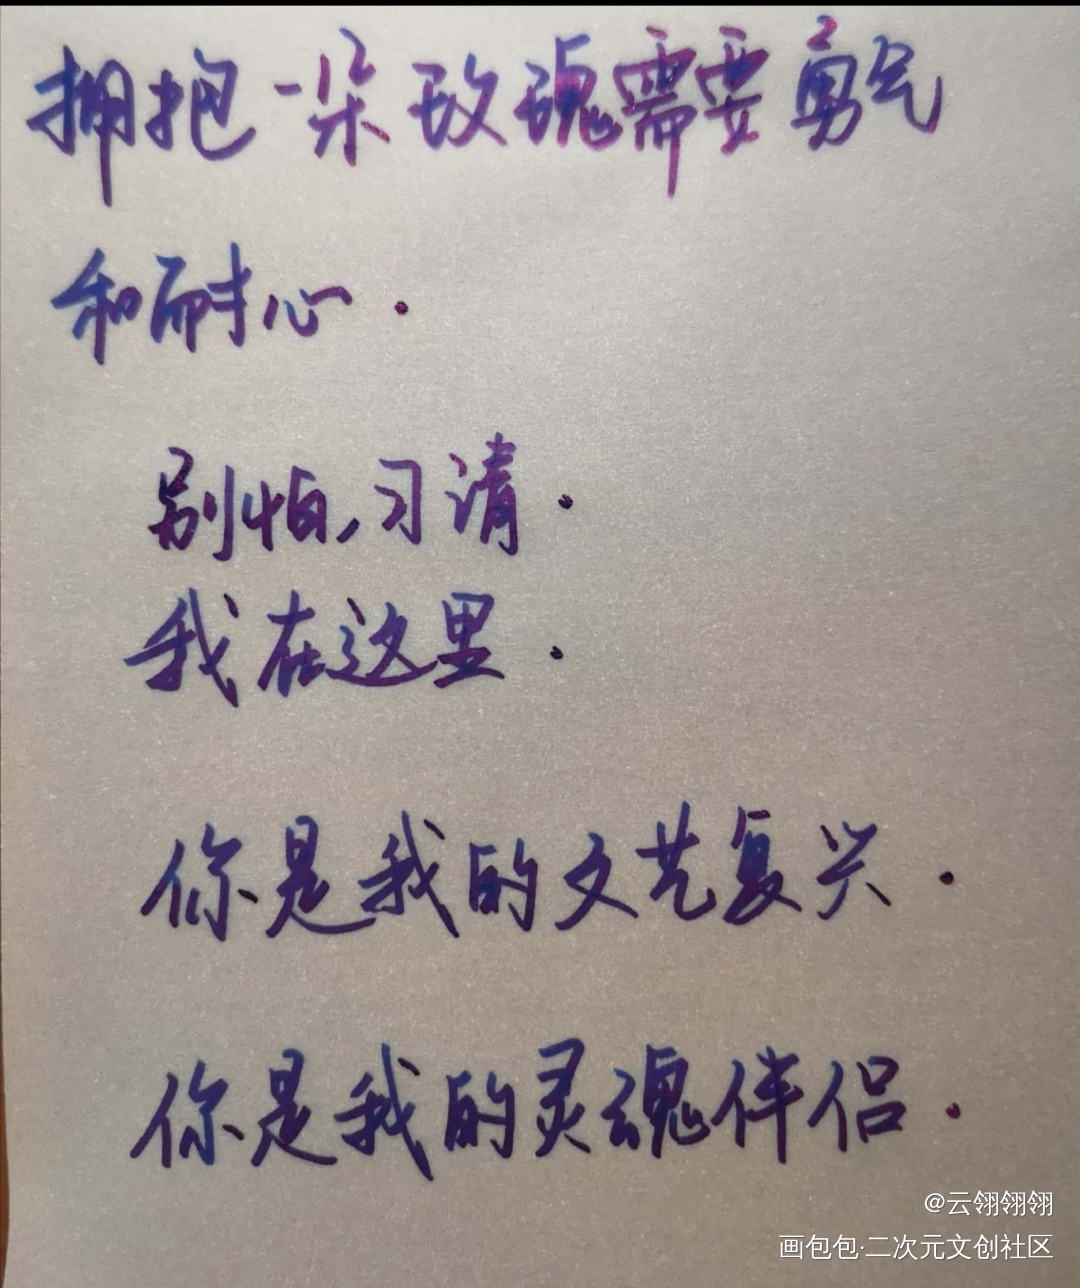 拥抱一朵玫瑰需要勇气
和耐心.
别怕,习清.
我在这里.
你是我的文艺复兴.
你是我的灵魂伴侣.
@云翎翎翎
画包包·二次元文创社区